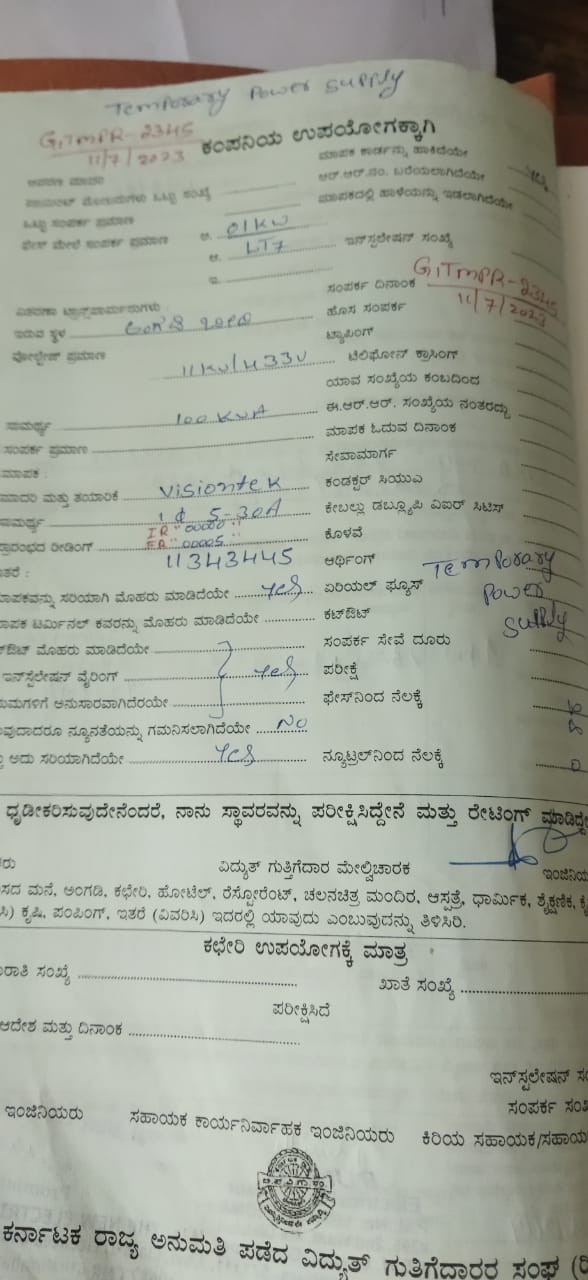 Temporary Power Supply
GITMPR-2345
11/7/2023
ಕಂಪನಿಯ ಉಪಯೋಗಕ್ಕಾಗಿ
ಮಾಪಕ ಕಾರ್ಡನ್ನು ಹಾಕಿದೆಯೇ
ಆರ್.ಆರ್.ನಂ. ಬರೆಯಲಾಗಿದೆಯೇ
ಒಟ್ಟು ಸಂಖ್ಯೆ
ಮಾಪಕದಲ್ಲಿ ಹಾಳೆಯನ್ನು ಇಡಲಾಗಿದೆಯೇ
ಒಟ್ಟು ಸಂಪರ್ಕ ಪ್ರಮಾಣ
ಫೇಸ್ ಮೇಲೆ ಸಂಪರ್ಕ ಪ್ರಮಾಣ ಅ. 01KW
ಆ. LT7 ಇನ್‌ಸ್ಟಲೇಷನ್ ಸಂಖ್ಯೆ
ಇ.
ಸಂಪರ್ಕ ದಿನಾಂಕ GITMPR-2345
11/7/2023
ಹೊಸ ಸಂಪರ್ಕ
ಇರುವ ಸ್ಥಳ
ಟ್ಯಾಪಿಂಗ್
ವೋಲ್ಟೇಜ್ ಪ್ರಮಾಣ 11KV/433V ಟೆಲಿಫೋನ್ ಕ್ರಾಸಿಂಗ್
ಯಾವ ಸಂಖ್ಯೆಯ ಕಂಬದಿಂದ
ಸಾಮರ್ಥ್ಯ 100 KVA ಈ.ಆರ್.ಆರ್. ಸಂಖ್ಯೆಯ ನಂತರದ್ದು
ಸಂಪರ್ಕ ಪ್ರಮಾಣ ಮಾಪಕ ಓದುವ ದಿನಾಂಕ
ಮಾಪಕ : ಸೇವಾಮಾರ್ಗ
ಮಾದರಿ ಮತ್ತು ತಯಾರಿಕೆ Visiontek ಕಂಡಕ್ಟರ್ ಸಿಯುವಿ
ಸಾಮರ್ಥ್ಯ 1 φ 5-30A ಕೇಬಲ್ಲು ಡಬ್ಲ್ಯೂಪಿ ವಿಐರ್ ಸಿಟಿಸ್
IR "00000"
ಪ್ರಾರಂಭದ ರೀಡಿಂಗ್ FR "00005" ಕೊಳವೆ
ಇತರೆ : 11343445 ಆರ್ಥಿಂಗ್ Temporary
ಮಾಪಕವನ್ನು ಸರಿಯಾಗಿ ಮೊಹರು ಮಾಡಿದೆಯೇ Yes ಏರಿಯಲ್ ಫ್ಯೂಸ್ Power
ಮಾಪಕ ಟರ್ಮಿನಲ್ ಕವರನ್ನು ಮೊಹರು ಮಾಡಿದೆಯೇ ಕಟ್‌ಔಟ್ Supply
ಕಟ್‌ಔಟ್ ಮೊಹರು ಮಾಡಿದೆಯೇ ಸಂಪರ್ಕ ಸೇವೆ ದೂರು
ಇನ್‌ಸ್ಟಲೇಷನ್ ವೈರಿಂಗ್ Yes ಪರೀಕ್ಷೆ
ನಿಯಮಗಳಿಗೆ ಅನುಸಾರವಾಗಿದೆಯೇ ಫೇಸ್‌ನಿಂದ ನೆಲಕ್ಕೆ
ಯಾವುದಾದರೂ ನ್ಯೂನತೆಯನ್ನು ಗಮನಿಸಲಾಗಿದೆಯೇ NO
ಅದು ಸರಿಯಾಗಿದೆಯೇ Yes ನ್ಯೂಟ್ರಲ್‌ನಿಂದ ನೆಲಕ್ಕೆ
ಧೃಡೀಕರಿಸುವುದೇನೆಂದರೆ, ನಾನು ಸ್ಥಾವರವನ್ನು ಪರೀಕ್ಷಿಸಿದ್ದೇನೆ ಮತ್ತು ರೇಟಿಂಗ್ ಮಾಡಿದ್ದೇ
ವಿದ್ಯುತ್ ಗುತ್ತಿಗೆದಾರ ಮೇಲ್ವಿಚಾರಕ ಇಂಜಿನಿಯ
ಸದ ಮನೆ, ಅಂಗಡಿ, ಕಛೇರಿ, ಹೋಟೆಲ್, ರೆಸ್ಟೋರೆಂಟ್, ಚಲನಚಿತ್ರ ಮಂದಿರ, ಆಸ್ಪತ್ರೆ, ಧಾರ್ಮಿಕ, ಶೈಕ್ಷಣಿಕ, ಕೈ
ಸಿ) ಕೃಷಿ, ಪಂಪಿಂಗ್, ಇತರೆ (ವಿವರಿಸಿ) ಇದರಲ್ಲಿ ಯಾವುದು ಎಂಬುವುದನ್ನು ತಿಳಿಸಿರಿ.
ಕಛೇರಿ ಉಪಯೋಗಕ್ಕೆ ಮಾತ್ರ
ರಾತಿ ಸಂಖ್ಯೆ ಖಾತೆ ಸಂಖ್ಯೆ
ಪರೀಕ್ಷಿಸಿದೆ
ಆದೇಶ ಮತ್ತು ದಿನಾಂಕ
ಇನ್‌ಸ್ಟಲೇಷನ್ ಸಂ
ಸಂಪರ್ಕ ಸಂಖ
ಇಂಜಿನಿಯರು ಸಹಾಯಕ ಕಾರ್ಯನಿರ್ವಾಹಕ ಇಂಜಿನಿಯರು ಕಿರಿಯ ಸಹಾಯಕ/ಸಹಾಯ
ಕರ್ನಾಟಕ ರಾಜ್ಯ ಅನುಮತಿ ಪಡೆದ ವಿದ್ಯುತ್ ಗುತ್ತಿಗೆದಾರರ ಸಂಘ